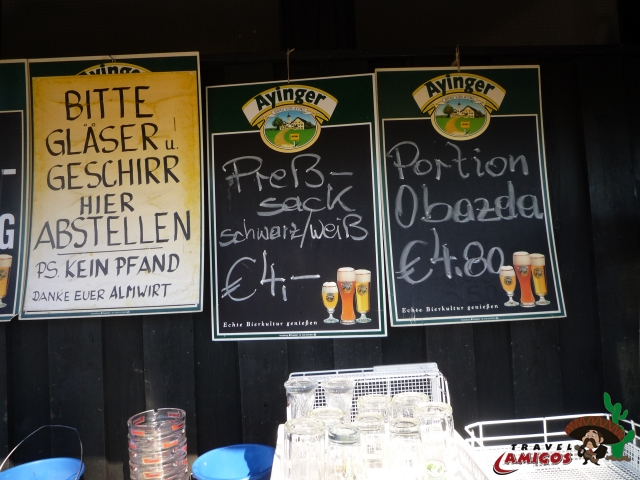 G
BITTE
GLÄSER u.
GESCHIRR
HIER
ABSTELLEN
PS. KEIN PFAND
DANKE EUER ALMWIRT
Ayinger
Preß-
sack
schwarz/weiß
€ 4,-
Echte Bierkultur genießen
Ayinger
Portion
Obazda
€ 4.80
Echte Bierkultur genießen
TRAVEL
AMIGOS